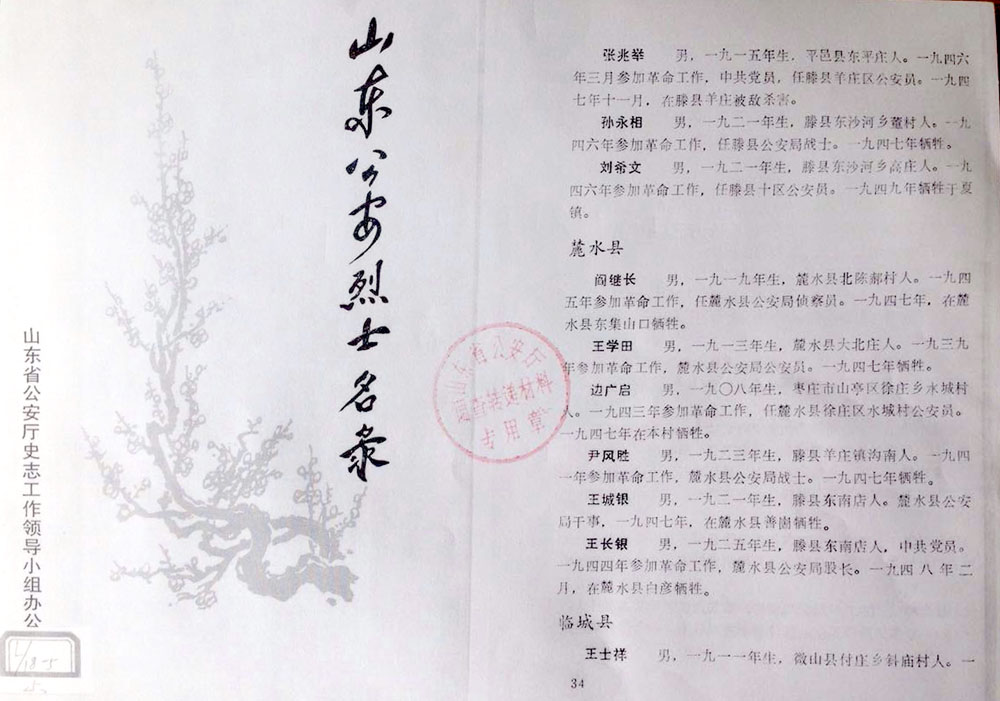 山东公安烈士名录
山东省公安厅史志工作领导小组办公
张兆举 男，一九一五年生，平邑县东平庄人。一九四六
年三月参加革命工作，中共党员，任滕县羊庄区公安员。一九四
七年十一月，在滕县羊庄被敌杀害。
孙永相 男，一九二一年生，滕县东沙河乡董村人。一九
四六年参加革命工作，任滕县公安局战士。一九四七年牺牲。
刘希文 男，一九二一年生，滕县东沙河乡高庄人。一九
四六年参加革命工作，任滕县十区公安员。一九四九年牺牲于夏
镇。
麓水县
阎继长 男，一九一九年生，麓水县北陈郝村人。一九四
五年参加革命工作，任麓水县公安局侦察员。一九四七年，在麓
水县东集山口牺牲。
王学田 男，一九一三年生，麓水县大北庄人。一九三九
年参加革命工作，麓水县公安局公安员。一九四七年牺牲。
边广启 男，一九〇八年生，枣庄市山亭区徐庄乡水城村
人。一九四三年参加革命工作，任麓水县徐庄区水城村公安员。
一九四七年在本村牺牲。
尹风胜 男，一九二三年生，滕县羊庄镇沟南人。一九四
一年参加革命工作，麓水县公安局战士。一九四七年牺牲。
王城银 男，一九二一年生，滕县东南店人。麓水县公安
局干事，一九四七年，在麓水县善崮牺牲。
王长银 男，一九二五年生，滕县东南店人，中共党员。
一九四四年参加革命工作，麓水县公安局股长。一九四八年二
月，在麓水县白彦牺牲。
临城县
王士祥 男，一九一一年生，微山县付庄乡斜庙村人。一
34
山东省公安厅
转递材料
专用章